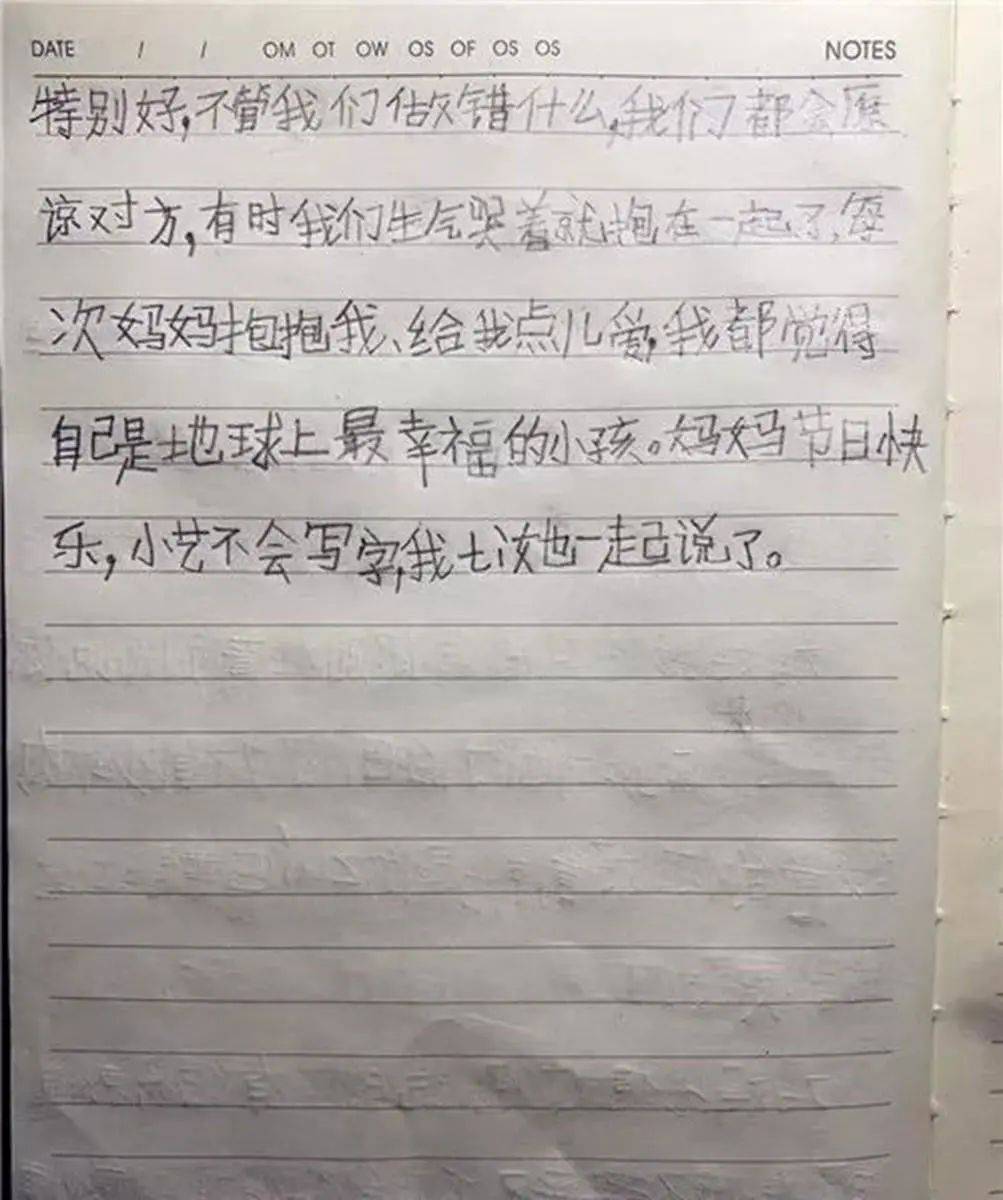 DATE / / OM OT OW OS OF OS OS NOTES
特别好,不管我们做错什么,我们都会原
谅对方,有时我们生气哭着就抱在一起了,每
次妈妈抱抱我、给我点儿爱,我都觉得
自己是地球上最幸福的小孩。妈妈节日快
乐,小艺不会写字,我七汝她一起说了。